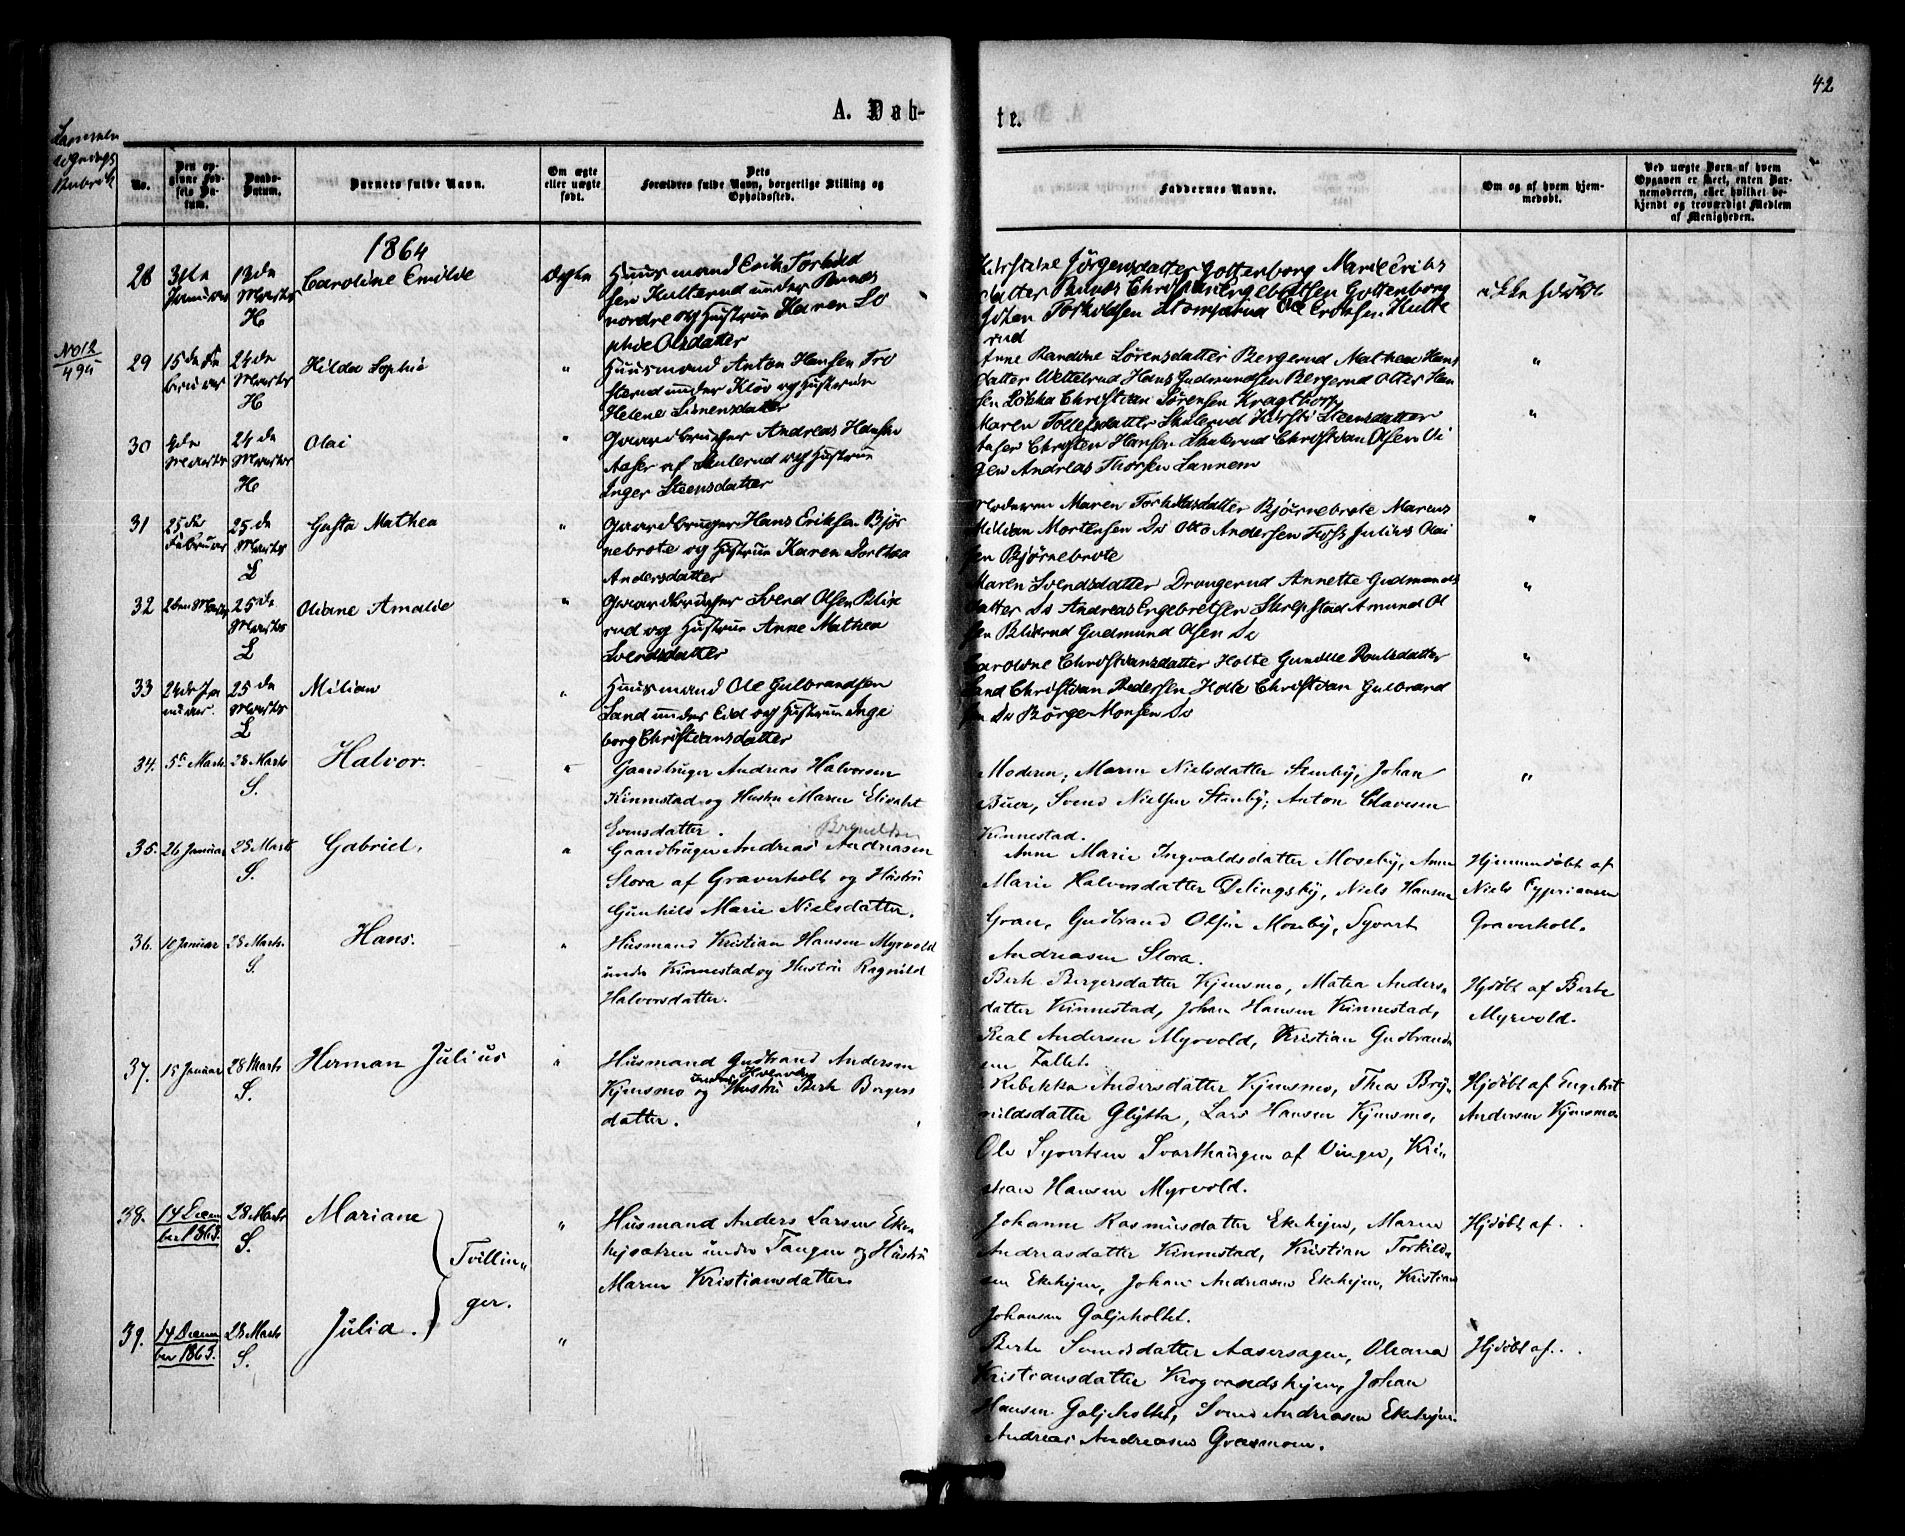 42
A. Døb-
te.
No.
Den op-
givne Fød-
sels Da-
tum.
Daabs-
Datum.
Barnets fulde Navn.
Om ægte
eller uægte
født.
Dets
Forældres fulde Navn, borgerlige Stilling og
Opholdssted.
Faddernes Navne.
Om og af hvem hjem-
medøbt.
Ved uægte Barn af hvem
Opgaven er skeet, enten Bar-
nemoderen, eller hvilket be-
kjendt og troværdigt Medlem
af Menigheden.
1864
28
13de
Marts
H
Caroline Emilie
Ægte
Huusmand Erik Torkild
sen Kulterud under Runds
nordre og Hustrue Karen So
phie Olsdatter
Kirstine Jörgensdatter Gottenborg Marie Eriks
datter Runds Christian Engebretsen Gottenborg
Johan Torkildsen Ole Eriksen Kulte
rud
ikke hdøbt
No 12
494
29
15de Fe
bruar
24de
Marts
H
Hilda Sophie
"
Huusmand Anton Hansen Tro
sterud under Kløv og Hustrue
Helene Sörensdatter
Anne Randine Sörensdatter Bergerud Mathea Hans
datter Wettelrud Hans Gudmundsen Bergerud Otter Han
sen Løkka Christian Sörensen Kragtorp
"
30
4de
Marts
24de
Marts
H
Olai
"
Gaardbruger Andreas Hansen
Aaser af Skulerud og Hustrue
Inger Steensdatter
Maren Tollefsdatter Skulerud Kirsti Steensdatter
Aaser Christen Hansen Skulerud Christian Olsen Vi
gen Andreas Thorsen Sannem
"
31
25de
Februar
25de
Marts
L
Gusta Mathea
"
Gaardbruger Hans Eriksen Bjør
nebrote og Hustrue Karen Dorthea
Andersdatter
Moderen Maren Torkildsdatter Bjørnebrote Marcus
Milian Mortensen Do Otto Andersen Foss Julius Olai
sen Bjørnebrote
"
32
2den Marts
25de
Marts
L
Oliane Amalie
"
Gaardbruger Svend Olsen Blix
rud og Hustrue Anne Mathea
Svendsdatter
Maren Svendsdatter Drongerud Annette Gudmunds
datter Do Andreas Engebretsen Skrepstad Amund Ol
sen Blixrud Gudmund Olsen Do
"
33
24de Ja
nuar.
25de
Marts
L
Milian
"
Huusmand Ole Gulbrandsen
Sand under Eid og Hustrue Inge
borg Christiansdatter
Caroline Christiansdatter Holte Gunille Poulsdatter
Sand Christian Pedersen Holte Christian Gulbrand
sen Do Børge Monsen Do
"
34.
5te Marts
28 Marts
S.
Halvor.
"
Gaardbruger Andreas Halvorsen
Kinnestad og Hustru Maren Elisabet
Evensdatter.
Moderen, Maren Nielsdatter Stenby, Johan
Buer, Svend Nielsen Stenby, Anton Olavesen
Kinnestad.
"
35.
26 Januar
28 Marts
S.
Gabriel.
"
Gaardbruger Andreas Andreasen
Slora af Graverholt og Hustru
Gunhild Marie Nielsdatter.
Anne Marie Ingvaldsdatter Moseby, Anne
Marie Halvorsdatter Delingsby, Niels Hansen
Gran, Gudbrand Olsen Moseby, Syvert
Andreasen Slora.
Hjemmedøbt af
Niels Cypriansen
Graverholt.
36.
10 Januar
28 Marts.
S.
Hans.
"
Husmand Kristian Hansen Myrvold
under Kinnestad og Hustru Ragnild
Halvorsdatter.
Berte Børgersdatter Kjensmo, Matea Anders-
datter Kinnestad, Johan Hansen Kinnestad,
Real Andersen Myrvold, Kristian Gudbrand-
sen Fallet.
Hjdøbt af Berte
Myrvold.
37.
15 Januar
28 Marts
S.
Herman Julius
"
Husmand Gudbrand Andersen
Kjensmo og Hustru Berte Børgers
datter.
Rebekka Andersdatter Kjensmo, Thea Bry-
nildsdatter Glytta, Lars Hansen Kjensmo,
Ole Syvertsen Svarthaugen af Vinger, Kri-
stian Hansen Myrvold.
Hjdøbt af Engebret
Andersen Kjensmo
38.
14 Decem
ber 1863.
28 Marts
S.
Mariane
Tvillin-
ger.
"
Husmand Anders Larsen Eke-
kjeatren under Tangen og Hustru
Maren Kristiansdatter
Johanne Rasmusdatter Ekekjen, Maren
Andreasdatter Kinnestad, Kristian Torkild-
sen Ekekjen, Johan Andreasen Ekekjen, Kristian
Johansen Galjeholtet.
Hjdøbt af . .
39.
14 Decem
ber 1863.
28 Marts
S.
Julia.
"
Berte Svendsdatter Aasersagen, Oleana
Kristiansdatter Krogvandskjen, Johan
Hansen Galjeholtet, Svend Andreasen Ekekjen.
Andreas Andreasen Græsmoen.
Hjdøbt af . .